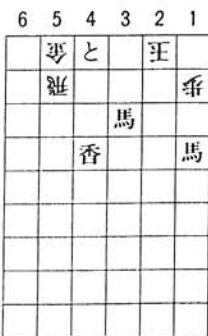 6 5 4 3 2 1
金 と 玉
飛 歩
馬
香 馬